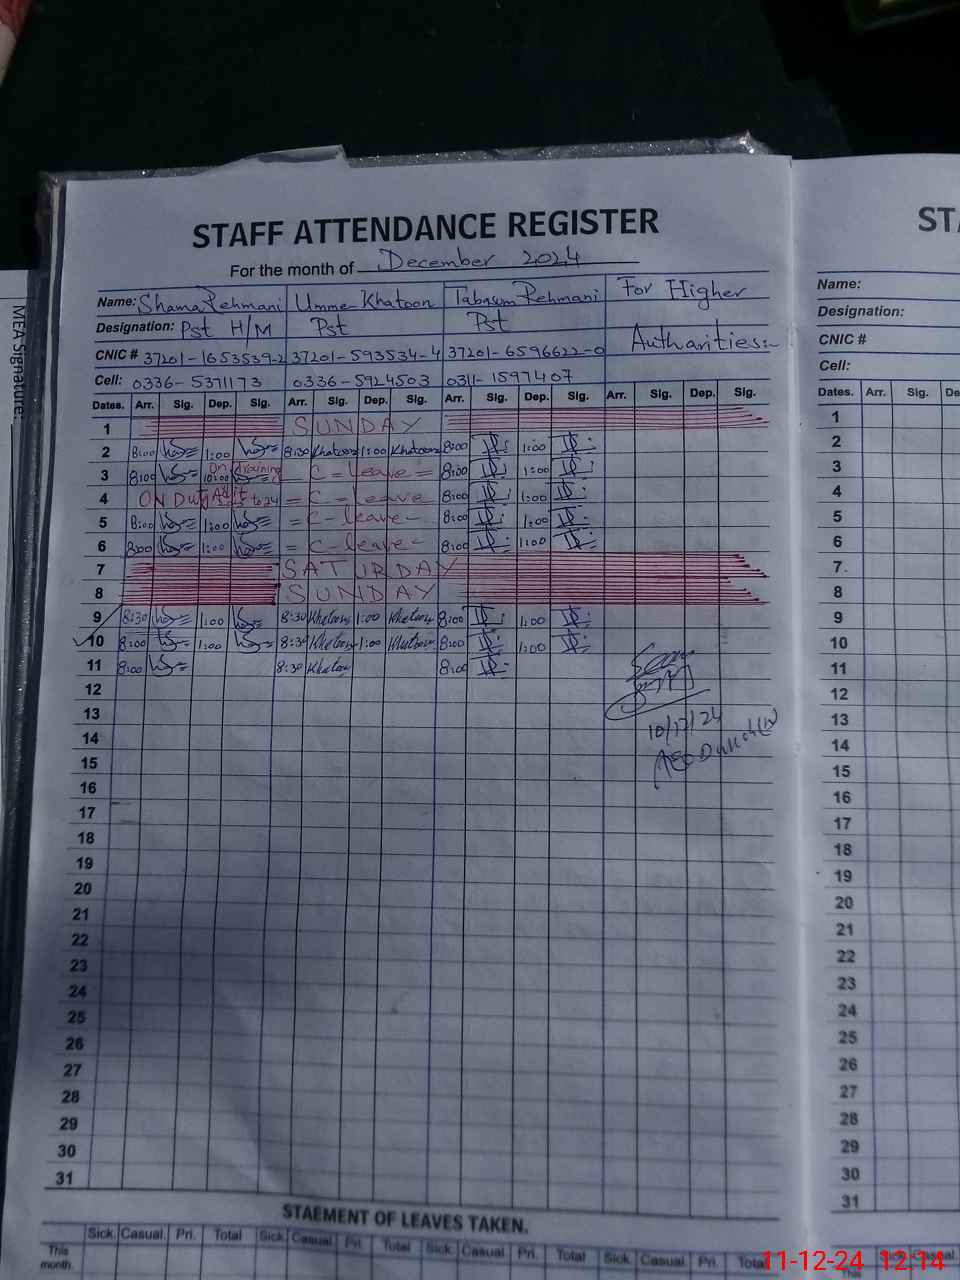 STAFF ATTENDANCE REGISTER
For the month of December 2024
Name: Shama Rehmani Umme Khatoon Tabasum Rehmani For Higher
Designation: Pst H/M Pst Pst Autharities:-
CNIC # 37201-1653539-2 37201-593534-4 37201-6596622-0
Cell: 0336-5371173 0336-5924503 0311-1597407
Dates. Arr. Sig. Dep. Sig. Arr. Sig. Dep. Sig. Arr. Sig. Dep. Sig. Arr. Sig. Dep. Sig.
1 SUNDAY
2 8:00 1:00 8:30 Khatoon 1:00 Khatoon 8:00 1:00
3 8:00 On training 10:00 C-leave = 8:00 1:00
4 ON Duty to 24 = C-leave 8:00 1:00
5 8:00 1:00 = C-leave- 8:00 1:00
6 8:00 1:00 = C-leave- 8:00 1:00
7 SATURDAY
8 SUNDAY
9 8:30 1:00 8:30 Khatoon 1:00 Khatoon 8:00 1:00
10 8:00 1:00 8:30 Khatoon 1:00 Khatoon 8:00 1:00
11 8:00 8:30 Khatoon 8:00
12
13
10/12/24
14
AEO
15
16
17
18
19
20
21
22
23
24
25
26
27
28
29
30
31
STAEMENT OF LEAVES TAKEN.
Sick. Casual. Pri. Total Sick. Casual. Pri. Total Sick. Casual. Pri. Total Sick. Casual. Pri. Total
This month.
MEA Signature:
STA
Name:
Designation:
CNIC #
Cell:
Dates. Arr. Sig. De
1
2
3
4
5
6
7
8
9
10
11
12
13
14
15
16
17
18
19
20
21
22
23
24
25
26
27
28
29
30
31
Sick. Casual.
This
11-12-24 12.14